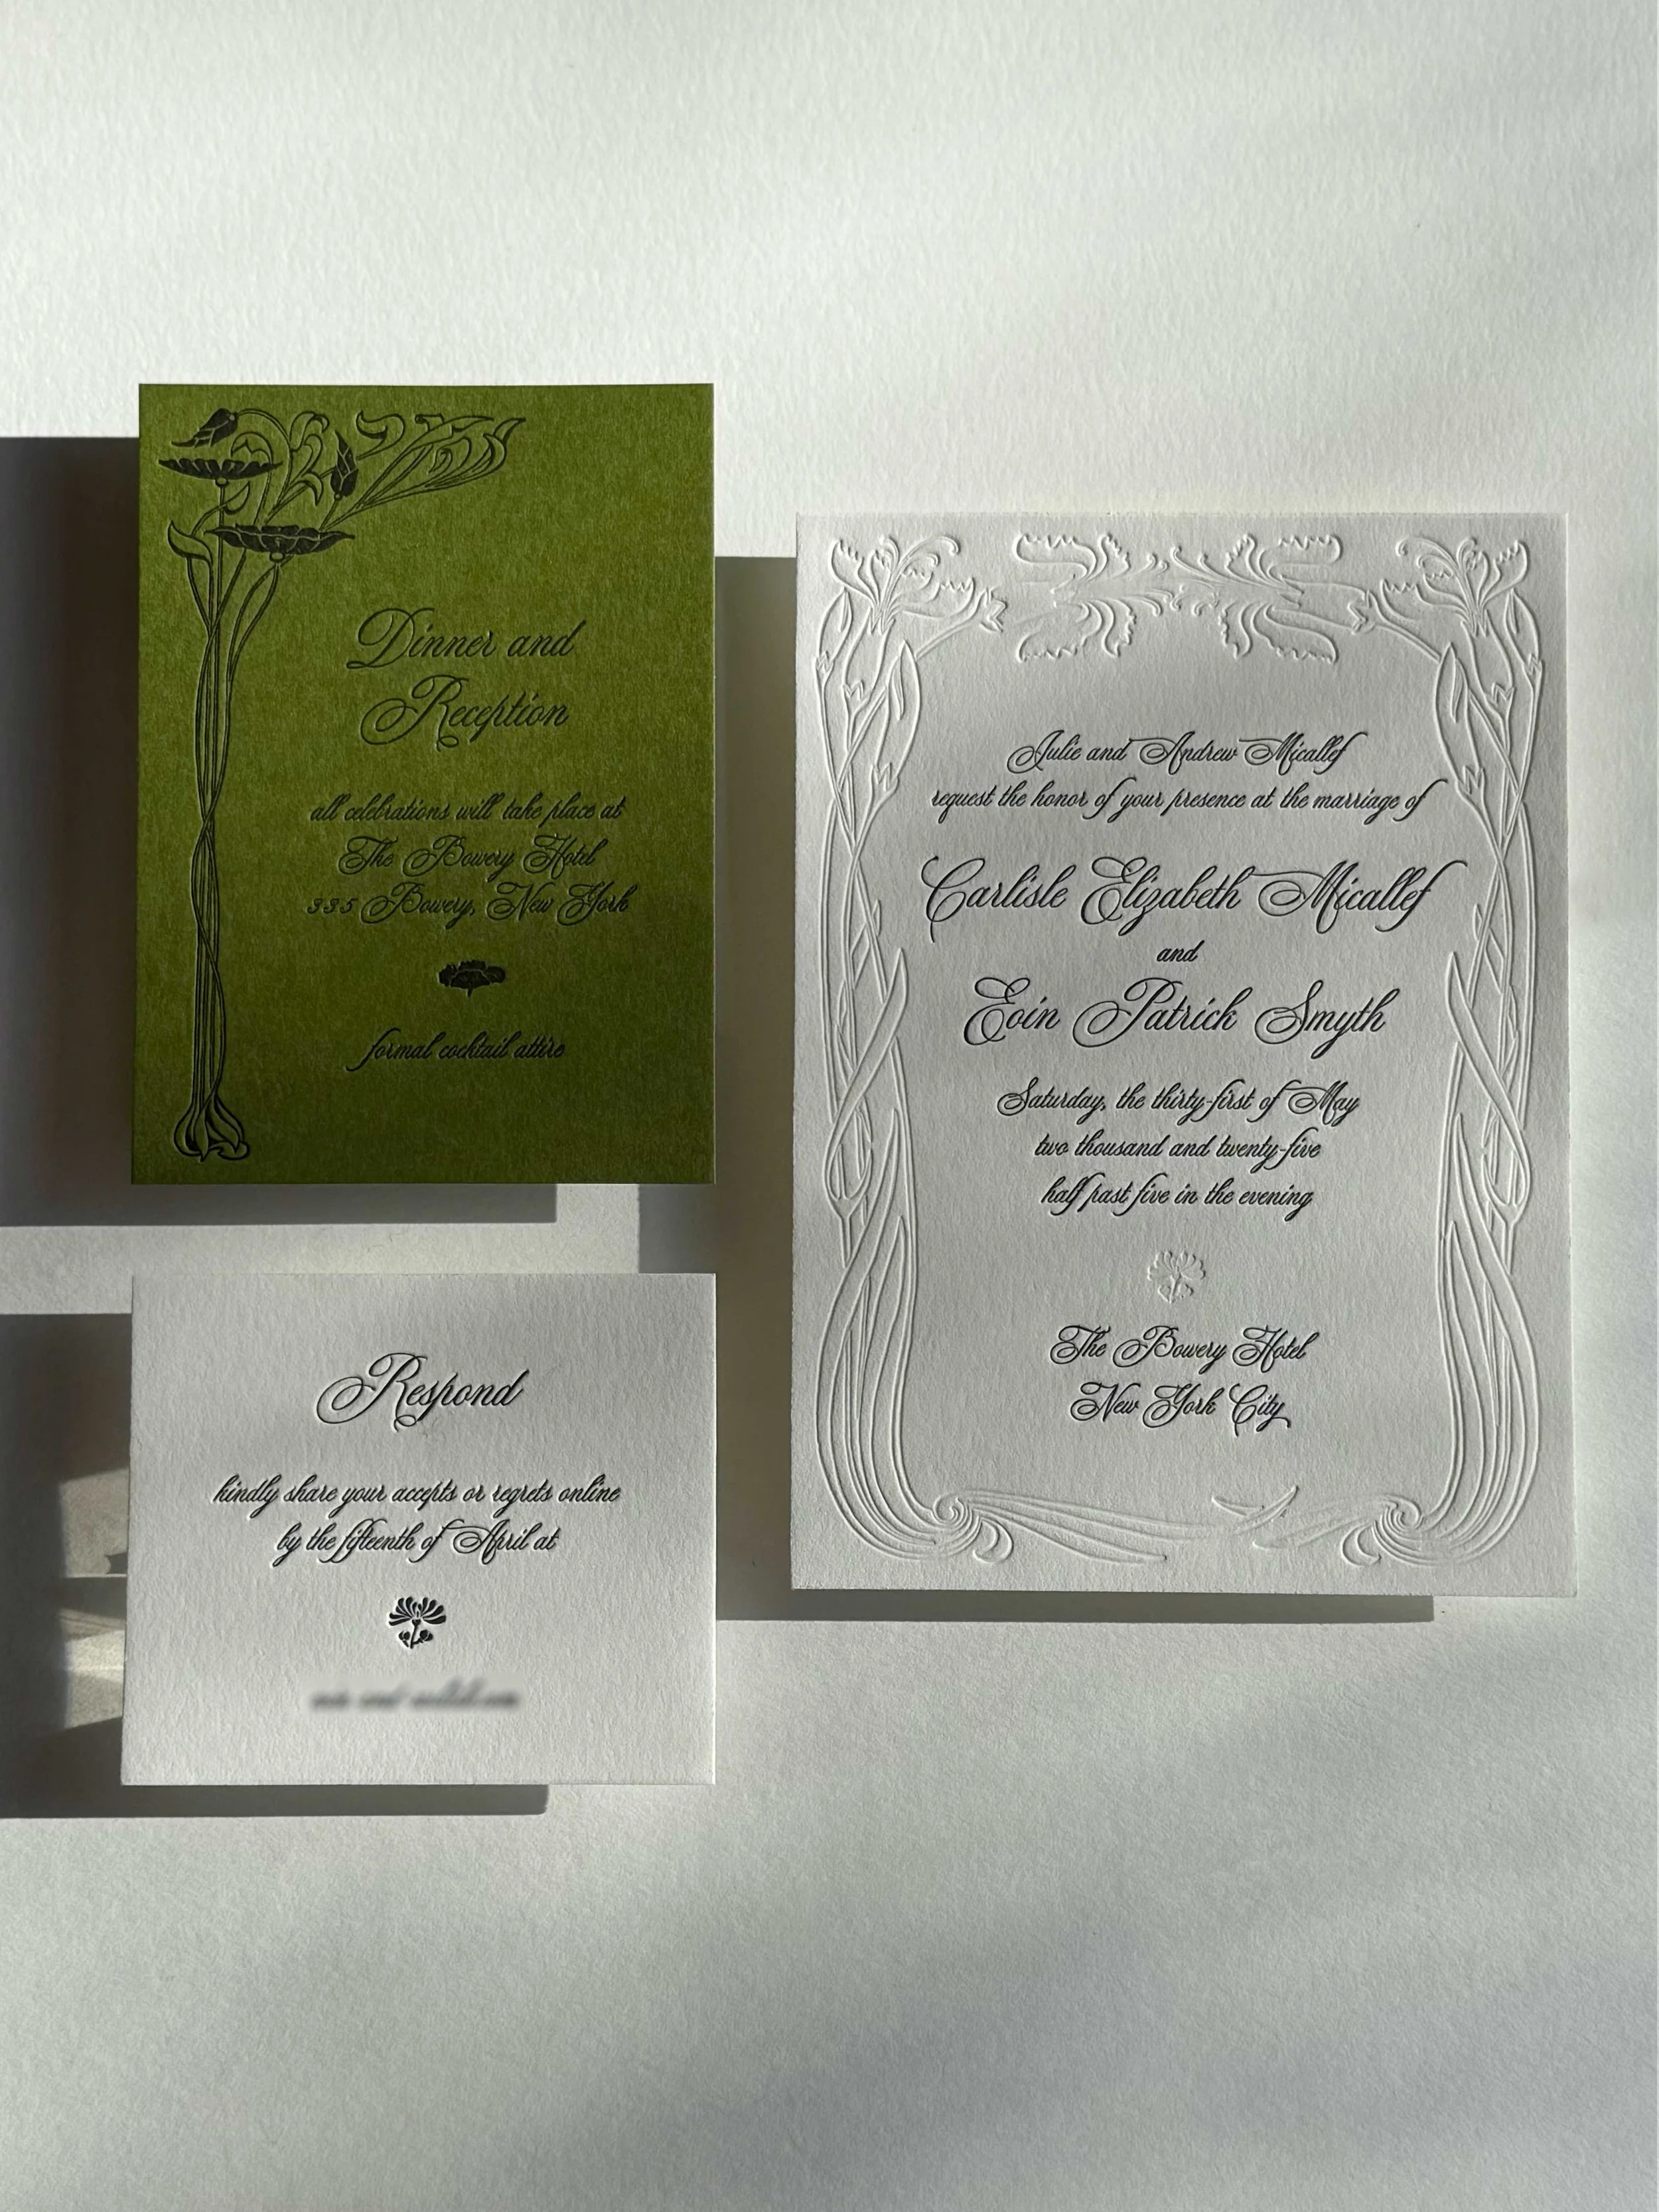 Dinner and
Reception
all celebrations will take place at
The Bowery Hotel
335 Bowery, New York
formal cocktail attire
Respond
kindly share your accepts or regrets online
by the fifteenth of April at
Julie and Andrew Micallef
request the honor of your presence at the marriage of
Carlisle Elizabeth Micallef
and
Eoin Patrick Smyth
Saturday, the thirty-first of May
two thousand and twenty-five
half past five in the evening
The Bowery Hotel
New York City